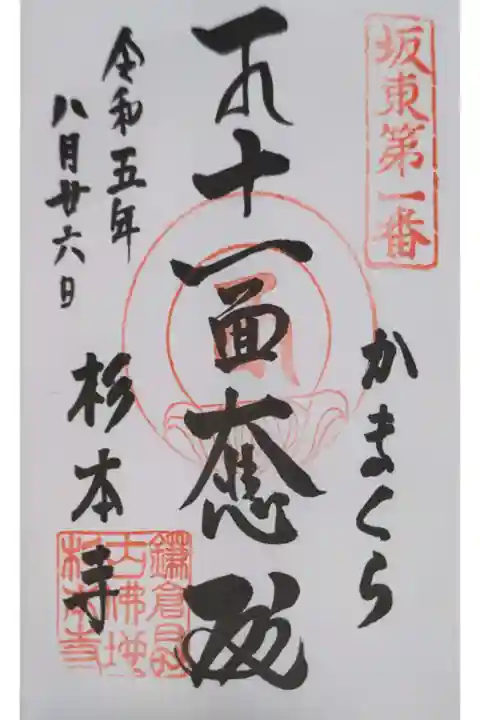 坂東第一番
かまくら
十一面
杉本寺
令和五年
八月廿六日
鎌倉
杉本寺